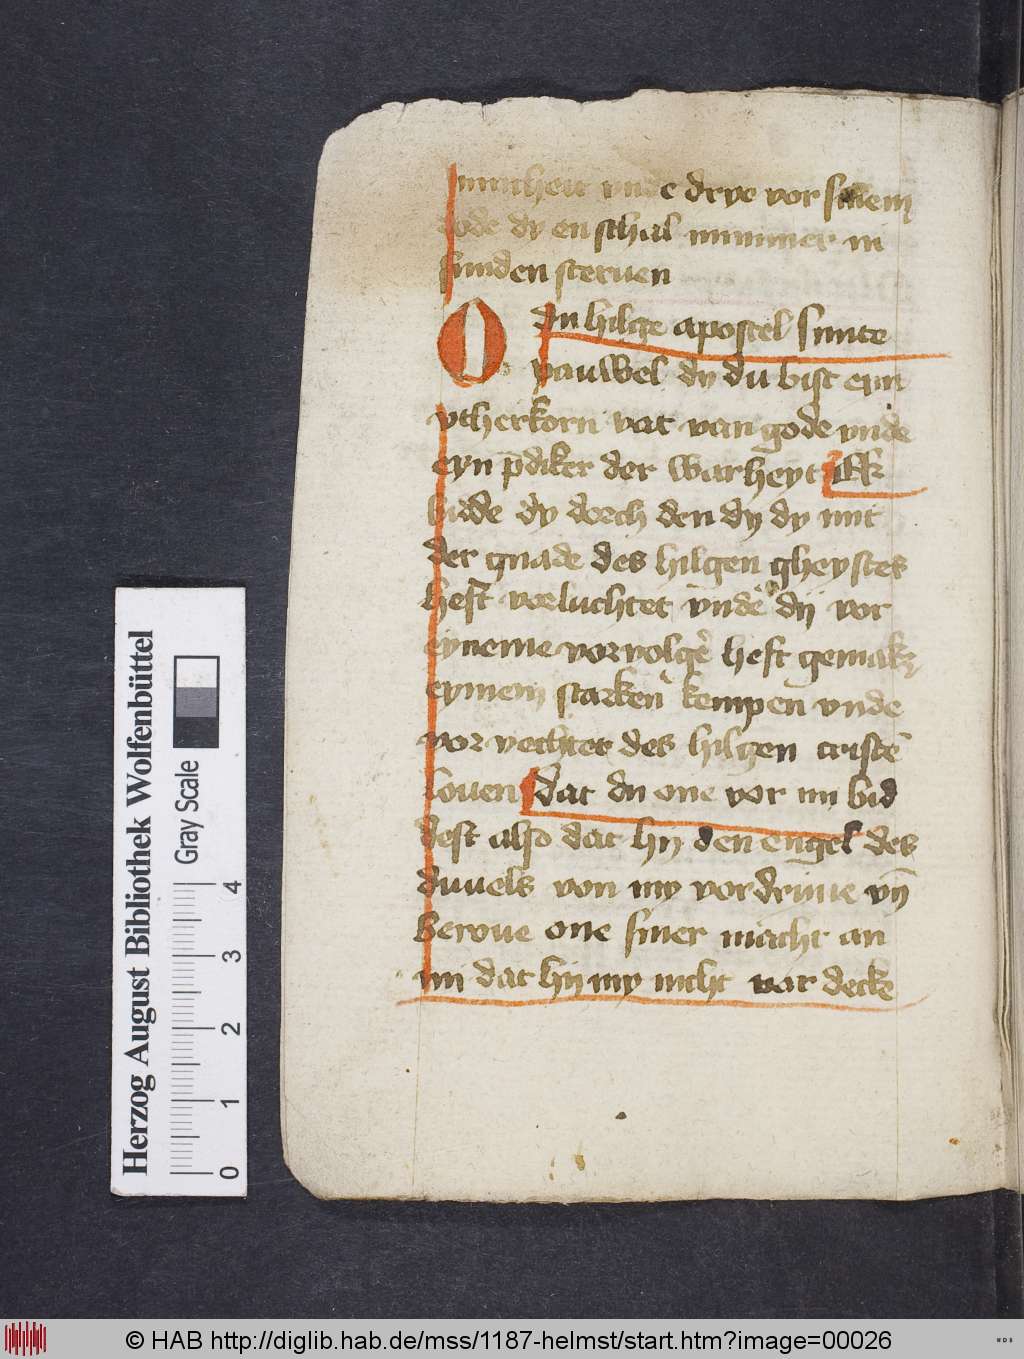 innicheit vnde drye vor sinem
dode dy en schal nummer in
sunden steruen
O du hilge apostel sunte
pauwel dy du bist eyn
vtherkorn vat van gode vnde
eyn p̄diker der warheyt Ek
bidde dy dorch den dy dy mit
der gnade des hilgen gheystes
heft vorluchtet vnde dij vor
eyneme voruolger heft gemaket
eynem starken kempen vnde
vor vechter des hilgen cristē
louen dat du one vor mi bid
dest also dat hij den engel des
duuels von my vordriue vn̄
beroue one siner macht an
mi dat hij my nicht vor decke
Herzog August Bibliothek Wolfenbüttel
Gray Scale
0 1 2 3 4
© HAB http://diglib.hab.de/mss/1187-helmst/start.htm?image=00026
WDB